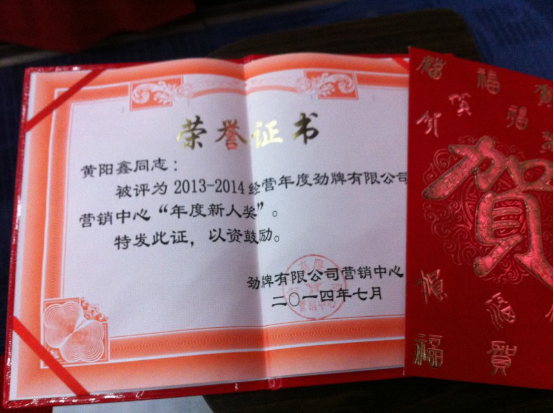 荣誉证书
黄阳鑫同志：
被评为2013-2014经营年度劲牌有限公司
营销中心“年度新人奖”。
特发此证，以资鼓励。
劲牌有限公司营销中心
二〇一四年七月
賀
福
福
賀
福
賀